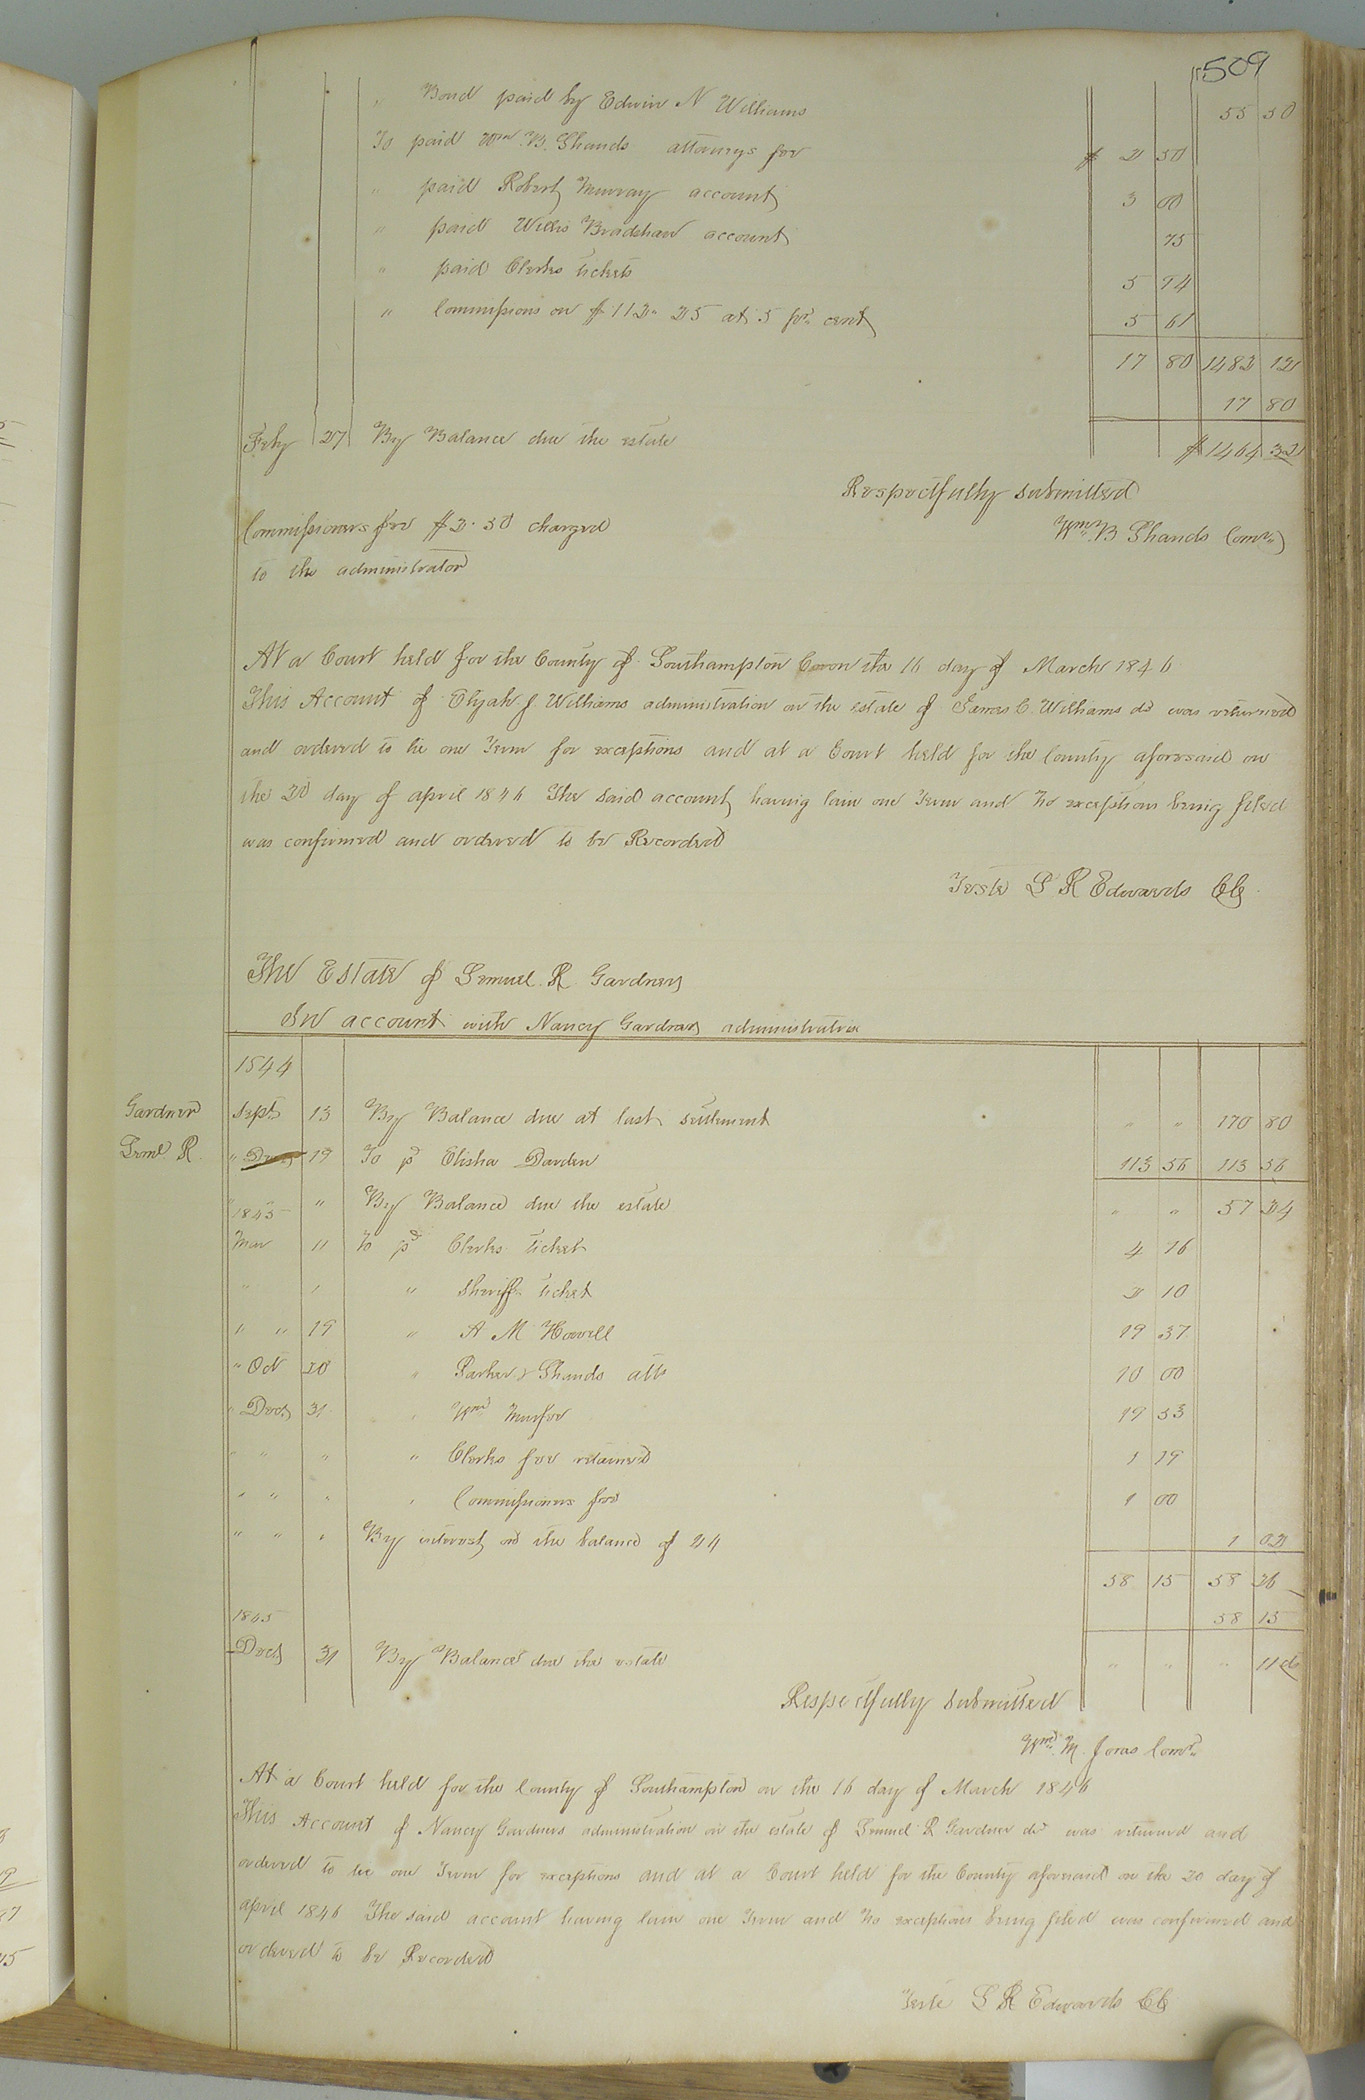 509
" Bond paid by Edwin N Williams 55 50
To paid Wm. B. Shands attorneys fee $ 2 50
" paid Robert Murray account 3 00
" paid Willis Bradshaw account 75
" paid Clerks tickets 5 94
" Commissions on $112.25 at 5 pr. cent 5 61
17 80 1482 12
17 80
Feby 27 By Balance due the estate $1464 32
Respectfully submitted
Commissioners fee $2.50 charged
Wm. B Shands Comr.
to the administrator
At a Court held for the County of Southampton on the 16 day of March 1846
This Account of Elijah J. Williams administration on the estate of James C. Williams dcd was returned
and ordered to lie one Term for exceptions and at a Court held for the County aforesaid on
the 20 day of april 1846 The said account having lain one Term and No exceptions being filed
was confirmed and ordered to be Recorded
Teste L R Edwards CC
The Estate of Lemuel R Gardner
In account with Nancy Gardner administratrix
1844
Gardner
Sept 13 By Balance due at last settlement " " 170 80
Leml. R.
" 19 To pd Elisha Darden 113 56 113 56
" By Balance due the estate " " 57 24
1845
Mar 11 To pd Clerks ticket 4 16
" " " Sheriffs ticket 2 10
" " 19 " A M Howell 19 37
" Oct 20 " Parker & Shands atts 10 00
" Decr 31 " Wm. Murfee 19 33
" " " " Clerks fee retained 1 19
" " " " Commissioners fee 1 00
" " " By interest on the balance of 24 1 02
58 15 58 26
1845
58 15
Decr 31 By Balance due the estate " " " 11cts
Respectfully submitted
Wm. M. Comr.
At a Court held for the County of Southampton on the 16 day of March 1846
This Account of Nancy Gardners administration on the estate of Lemuel R Gardner dcd was returned and
ordered to lie one Term for exceptions and at a Court held for the County aforesaid on the 20 day of
april 1846 The said account having lain one Term and No exceptions being filed was confirmed and
ordered to be Recorded
Teste L R Edwards CC